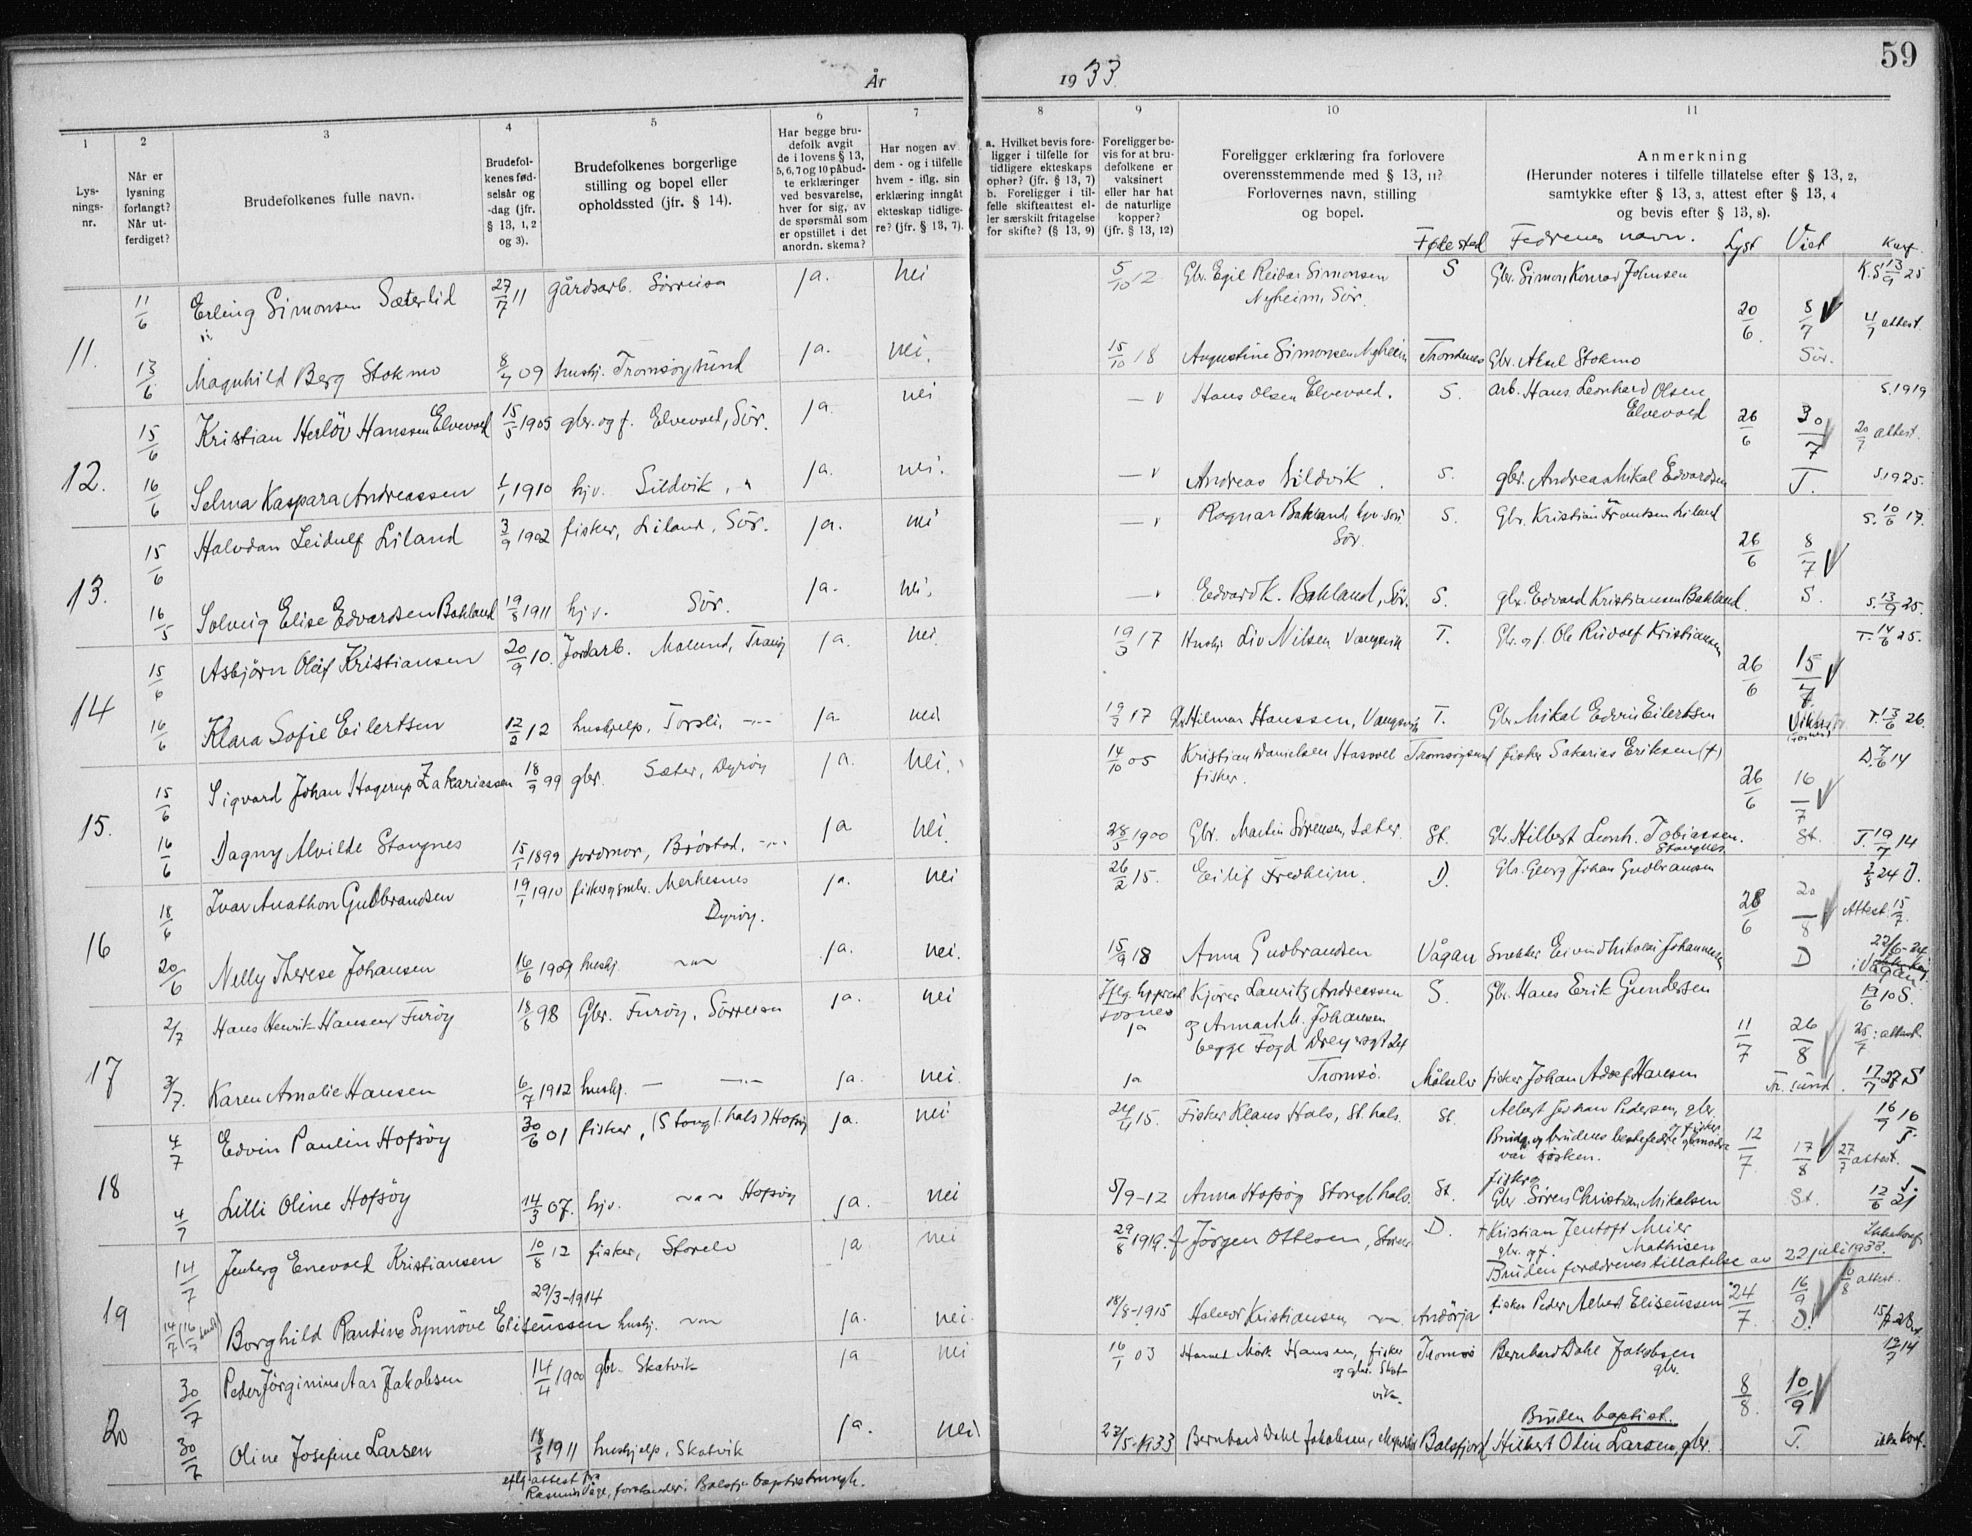 59
År 1933
1 2 3 4 5 6 7 8 9 10 11
Lysningsnr.
Når er lysning forlangt? Når utferdiget?
Brudefolkenes fulle navn.
Brudefolkenes fødselsår og -dag (jfr. § 13, 1, 2 og 3).
Brudefolkenes borgerlige stilling og bopel eller opholdssted (jfr. § 14).
Har begge brudefolk avgit de i lovens § 13, 5, 6, 7 og 10 påbudte erklæringer ved besvarelse, hver for sig, av de spørsmål som er opstillet i det anordn. skema?
Har nogen av dem - og i tilfelle hvem - iflg. sin erklæring inngått ekteskap tidligere? (jfr. § 13, 7).
a. Hvilket bevis foreligger i tilfelle for tidligere ekteskaps ophør? (jfr. § 13, 7)
b. Foreligger i tilfelle skifteattest eller særskilt fritagelse for skifte? (§ 13, 9)
Foreligger bevis for at brudefolkene er vaksinert eller har hat de naturlige kopper? (jfr. § 13, 12)
Foreligger erklæring fra forlovere overensstemmende med § 13, 11? Forlovernes navn, stilling og bopel.
Anmerkning
(Herunder noteres i tilfelle tillatelse efter § 13, 2, samtykke efter § 13, 3, attest efter § 13, 4 og bevis efter § 13, 8).
Fødested Fedrenes navn. Lyst Viet Konf.
11. 11/6 Erling Simonsen Sæterlid 27/7 11 gårdsarb. Sørreisa ja. nei 5/10 12 Gbr. Egil Reidar Simonsen Nyheim, Sør. S Gbr. Simon Konrad Johnsen 20/6 8/7 K.S 13/9 25
4/7 attest.
13/6 Magnhild Berg Stokmo 8/7 09 hushj. Tromsøysund ja. nei. 15/10 18 Augustine Simonsen Nyheim Trondenes Gbr. Aksel Stokmo Sør.
12. 15/6 Kristian Herløv Hanssen Elvevold 15/5 1905 gbr. og f. Elvevold, Sør. ja. nei Hans Olsen Elvevold. S. arb. Hans Leonhard Olsen Elvevold 26/6 30/7 S. 1919
20/7 attest.
16/6 Selma Kaspara Andreassen 1/1 1910 hjv. Sildvik, " ja. nei. Andreas Sildvik. S. gbr. Andreas Mikal Edvardsen T. S. 1925.
13. 15/6 Halvdan Leidulf Liland 3/9 1902 fisker, Liland, Sør. ja. nei Ragnar Bakland, Sør. S. Gbr. Kristian Frantsen Liland 26/6 8/7 S. 10/6 17.
16/5 Solveig Elise Edvardsen Bakland 19/8 1911 hjv. Sør. ja. nei. Edvard K. Bakland, Sør. S. gbr. Edvard Kristiansen Bakland. S. S. 13/9 25.
14 15/6 Asbjörn Olaf Kristiansen 20/9 10. Jordarb. Tranøy ja. nei. 19/3 17 Hushj. Liv Nilsen Vangsvik T. Gbr. og f. Ole Rudolf Kristiansen 26/6 15/7 T. 14/6 25.
16/6 Klara Sofie Eilertsen 12/2 12 hushjelp, Torsli, ja. nei 17 Hilmar Hanssen, Vangsvik T. Gbr. Mikal Edvin Eilertsen T. 13/6 26.
15. 15/6 Sigvard Johan Hagerup Zakariassen 18/9 99 gbr. Sæter, Dyrøy ja. nei. 14/10 05 Kristian Danielsen fisker. Tromsøysund fisker Sakarias Eriksen (†) 26/6 16/7 D. 7/6 14
16/6 Dagny Alvilde Stangnes 15/1 1899 jordmor, Brøstad, ja nei. 28/5 1900 Gbr. Martin Sørensen, Sæter. St. Gbr. Hilbert Leonh. Tobiassen Stangnes. St. T. 19/7 14
16 18/6 Ivar Anathon Gudbrandsen 19/1 1910 fisker og smbr. Merkesnes Dyrøy. ja. nei 26/2 15. Eilif Fredheim. D. Gbr. Georg Johan Gudbrandsen 28/6 20/8 24 D.
Attest 15/7.
20/6 Nelly Therese Johansen 16/6 1909 hushj. ja. nei. 15/9 18 Anna Gudbrandsen Vågan Snekker Eivind Nikolai Johannesen D 22/6-24 i Vågan
17 2/7 Hans Henrik Hansen Furøy 18/8 98 Gbr. Furøy, Sørreisa ja. nei ja Kjører Lauritz Andreassen og Anna M. Johansen begge Fogd Dreyersgt 24 Tromsø. S. Gbr. Hans Erik Gundersen 11/7 26/8 10 S.
25/7: attest
3/7. Karen Amalie Hansen 6/7 1912 hushj. ja. nei. ja Målselv fisker Johan Adolf Hansen Tr. sund. 17/7 27 S
18 4/7 Edvin Paulin Hofsøy 30/6 01 fisker, (Stongl.hals) Hofsøy ja. nei 24/4 15. Fisker Klaus Hals, St.hals. St. Albert Johan Pedersen, gbr. og fisker 12/7 17/8 16/7 16 T.
Brudg. og brudens bestefedre og mødre var søsken. 27/7 attest.
4/7 Lilli Oline Hofsøy 14/3 07. hjv. Hofsøy ja. nei 5/9-12 Anna Hofsøy Stonglhals. St. fisker og Gbr Søren Christian Mikalsen St. 12/6 21 T.
19 14/7 Jenberg Enevold Kristiansen 10/8 12 fisker, Storelv ja nei 29/8 1919. Jörgen Ottesen, D. †Kristian Jentoft Meier Mathisen gbr. og f. 24/7. 16/9 Ikke konf.
Bruden foreldrenes tillatelse av 22 juli 1933. attest.
14/7 Borghild Randine Synnøve Eliseussen 29/3-1914 hushj. ja. nei. 18/8-1915 Halvor Kristiansen Andørja fisker Peder Albert Eliseussen D.
20 30/7 Peder Jörginius Aas Jakobsen 14/4 1900 gbr. Skatvik ja nei 16/1 03 Harald Mørk Hansen, fisker og gbr. Skatvik. Tromsø Bernhard Dahl Jakobsen gbr. 8/8. 10/9 14
Bruden baptist.
30/7 Oline Josefine Larsen 18/8 1911 hushjelp, Skatvik ja. nei 22/5-1933 Bernhard Dahl Jakobsen, Balsfjord Hilbert Odin Larsen, gbr. T. ikke konf.
eflg. attest fra Rasmus Våge, forstander i Balsfj. baptistmngh.